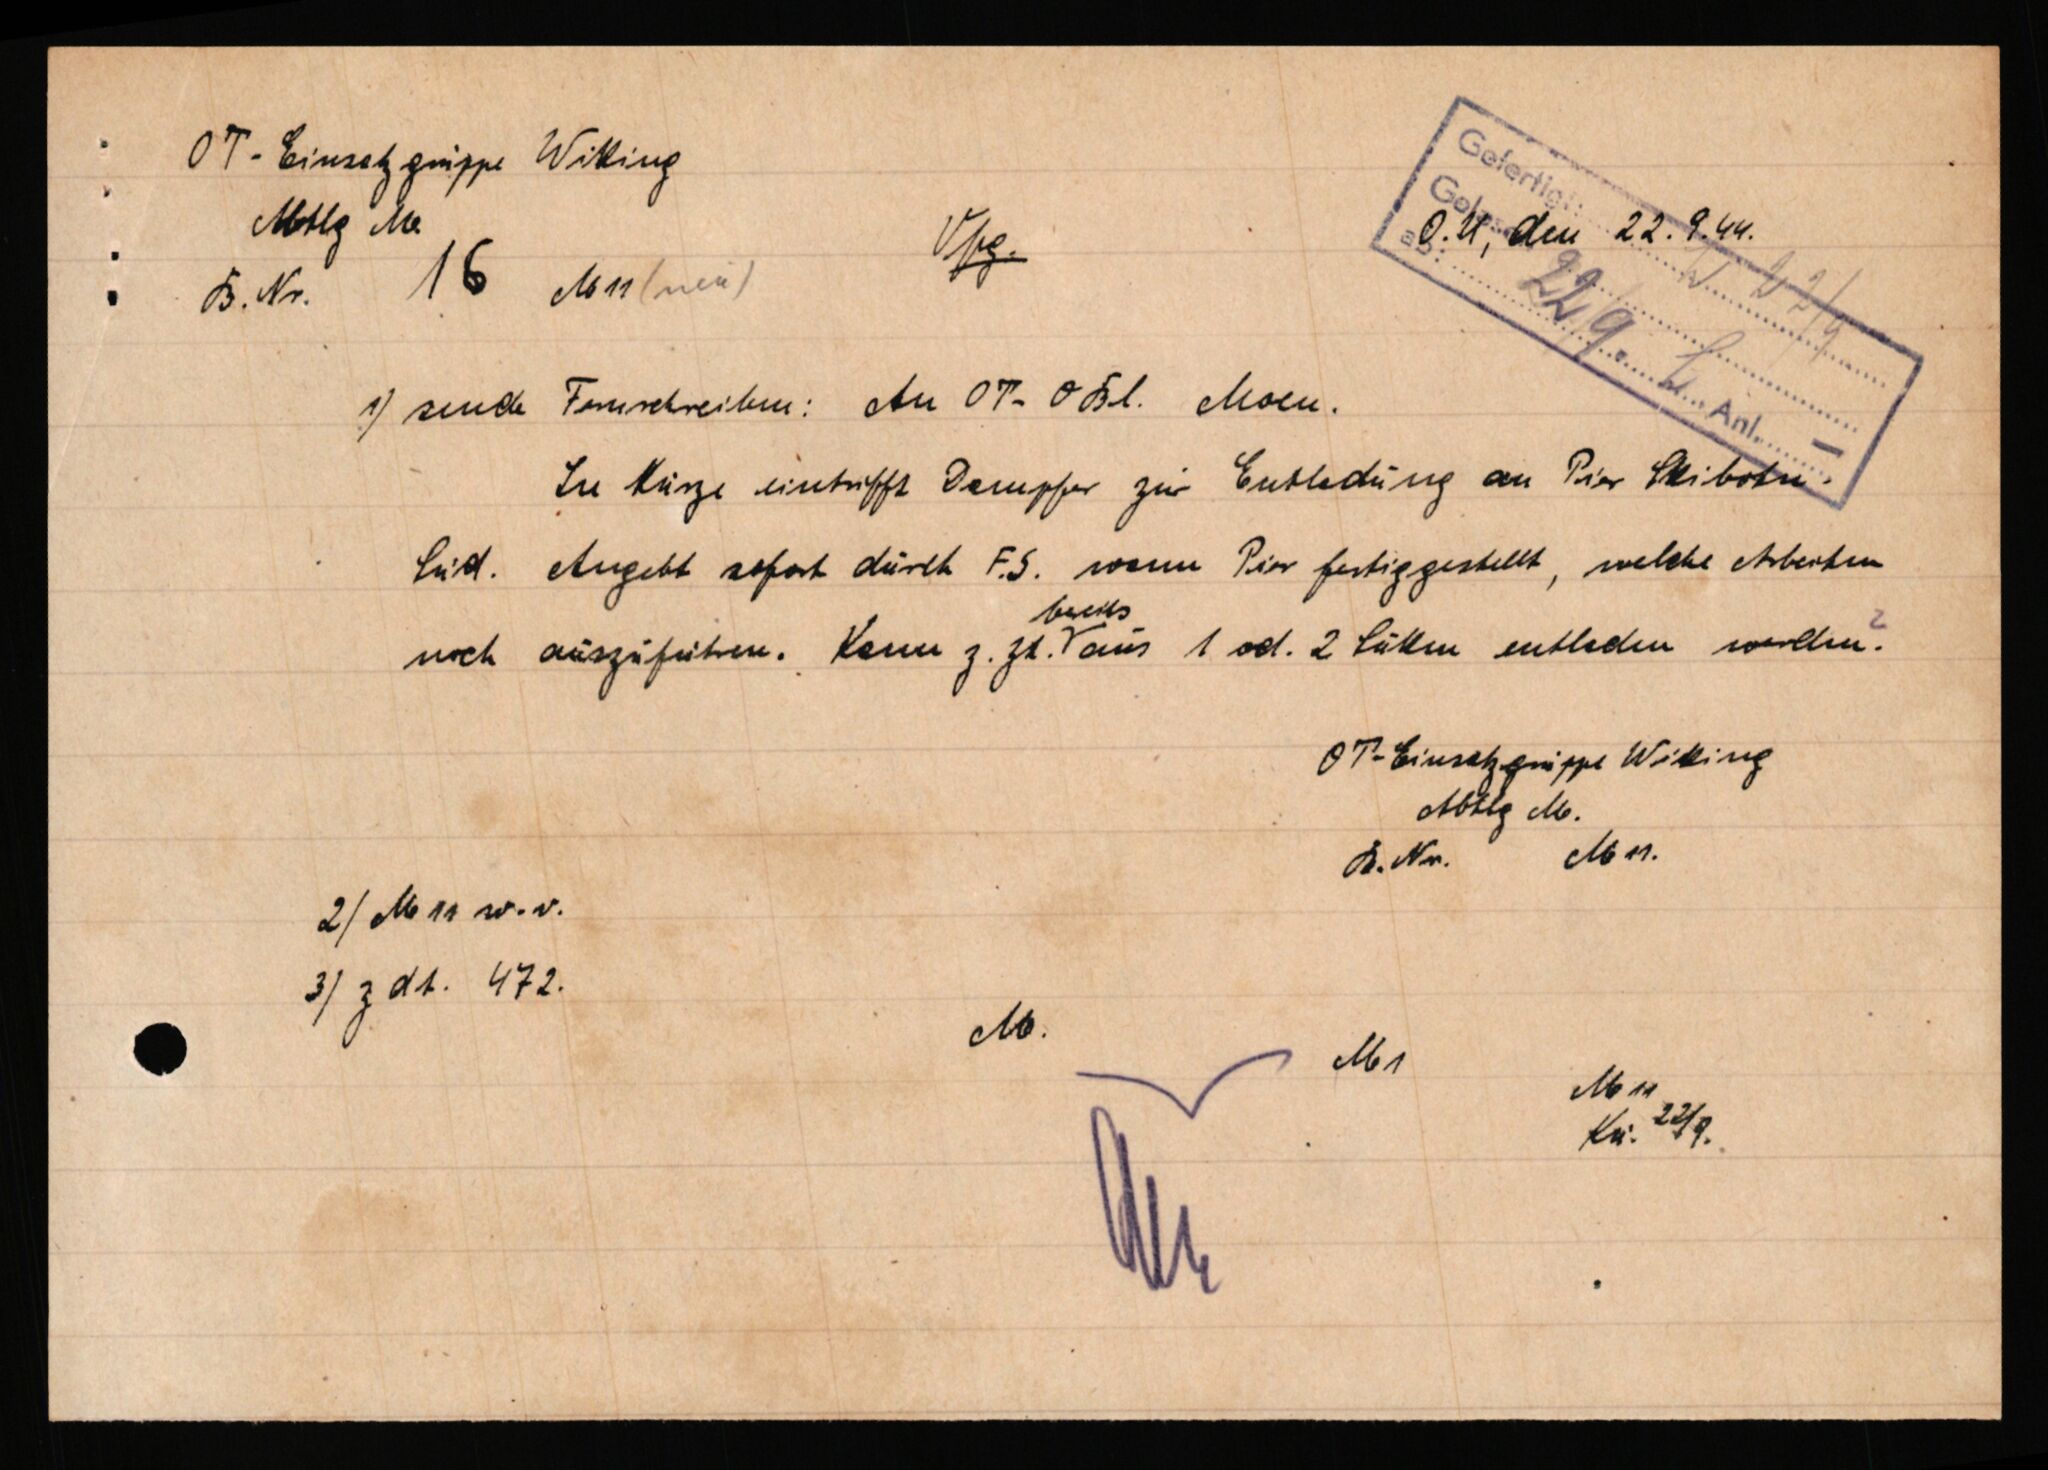 OT-Einsatzgruppe Wiking
Abtlg M.
B. Nr. 16 M 11 (neu)
Vfg.
O.U., den 22.9.44.
Gefertigt: 22/9
Geles
ab: 22/9. Anl. —
1) sende Fernschreiben: An OT-OBl. Moen.
In Kürze eintrifft Dampfer zur Entladung an Pier Skibotn-
Süd. Angebt sofort durch F.S. wann Pier fertiggestellt, welche Arbeiten
bereits
noch auszuführen. Kann z. Zt. aus 1 od. 2 Luken entladen werden?
OT-Einsatzgruppe Wiking
Abtlg M.
B. Nr. M 11.
2) M 11 w.v.
3) z dt. 472.
M.
M 1
M 11
Kü. 22/9.